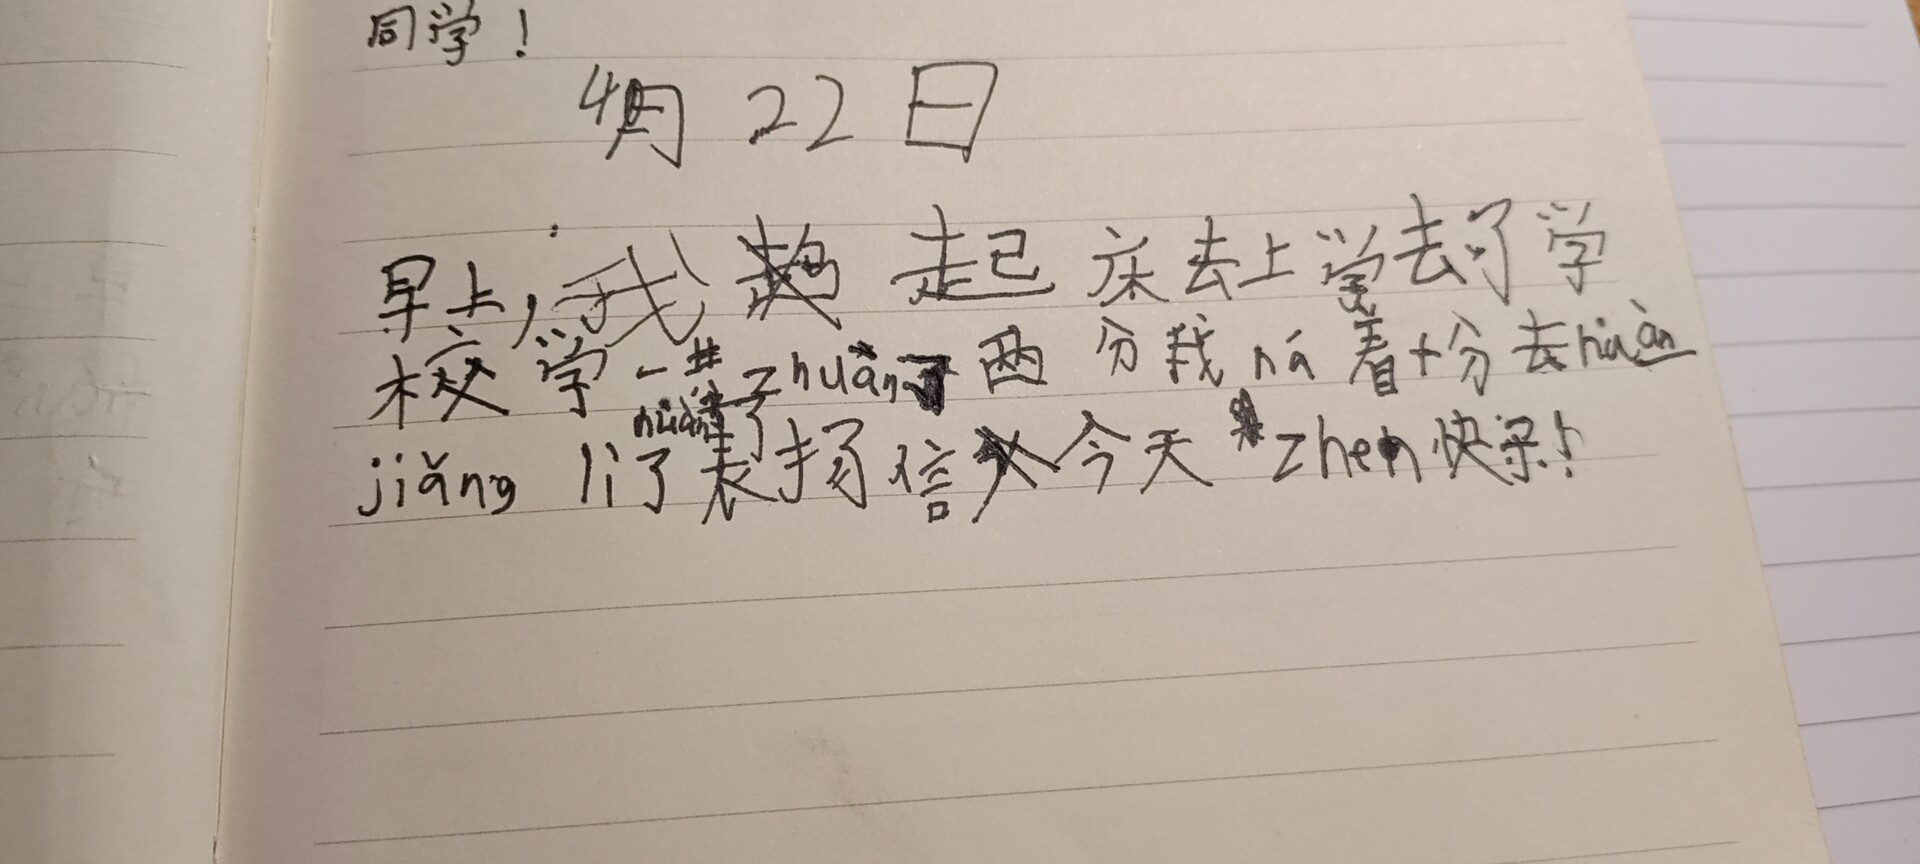 同学！
4月22日
早上，我起床去上学去了学
校学一共zhuàn了两分我ná着十分去huàn
jiǎng li了表扬信今天zhen快乐！